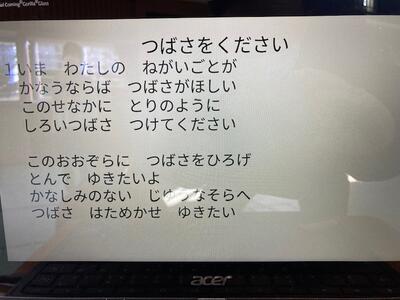 Corning® Gorilla® Glass
つばさをください
1 いま　わたしの　ねがいごとが
かなうならば　つばさがほしい
このせなかに　とりのように
しろいつばさ　つけてください
このおおぞらに　つばさをひろげ
とんで　ゆきたいよ
かなしみのない　じゆうなそらへ
つばさ　はためかせ　ゆきたい
acer